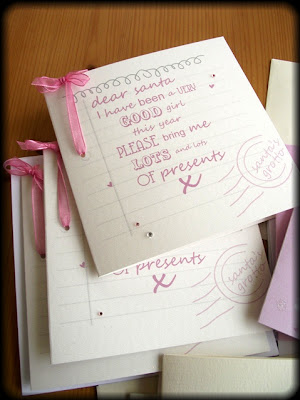 dear santa
I have been a VERY
GOOD girl
this year
PLEASE bring me
LOTS and lots
OF presents
X
santa's
grotto
OF presents
X
santa's
grotto